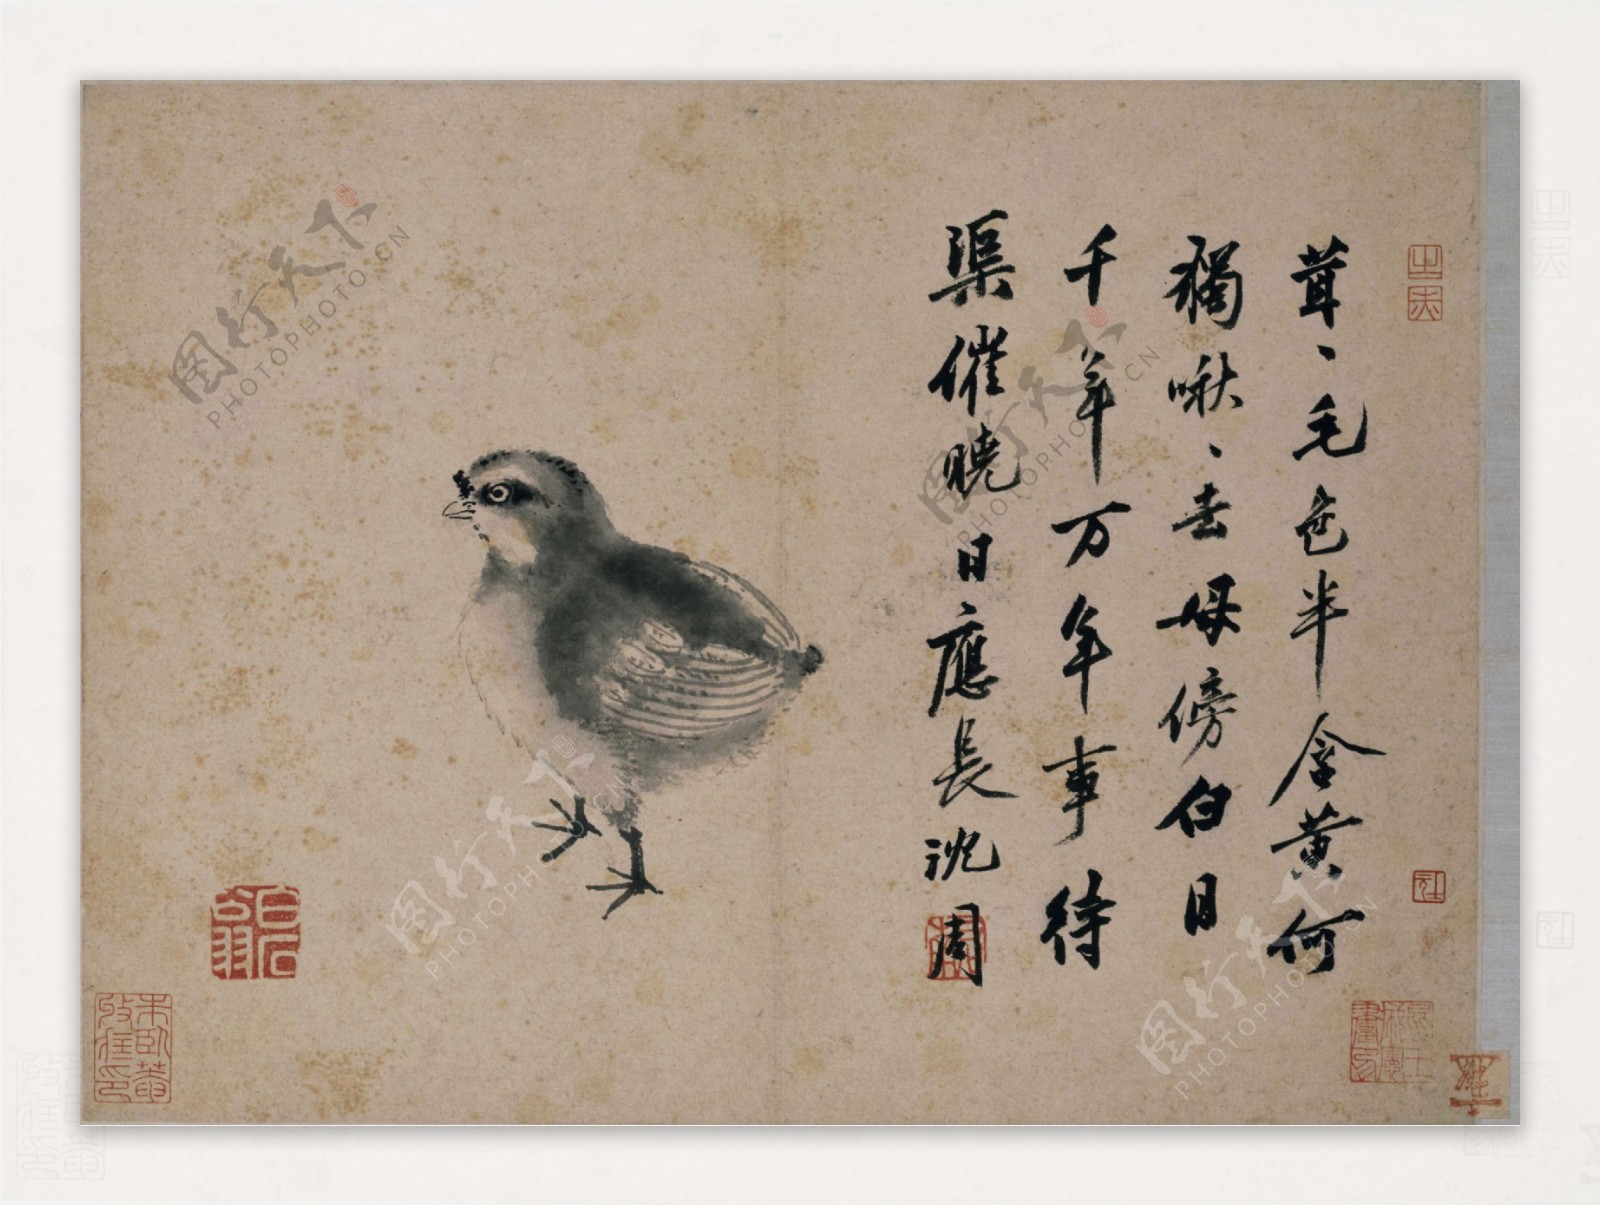 茸、毛色半含黄何
獨啾、去母傍白日
千年万年事待
渠催曉日應長沈周
朱臥菴
收藏印
图行天下
PHOTOPHOTO.CN
图行天下
PHOTOPHOTO.CN
图行天下
PHOTOPHOTO.CN
图行天下
PHOTOPHOTO.CN